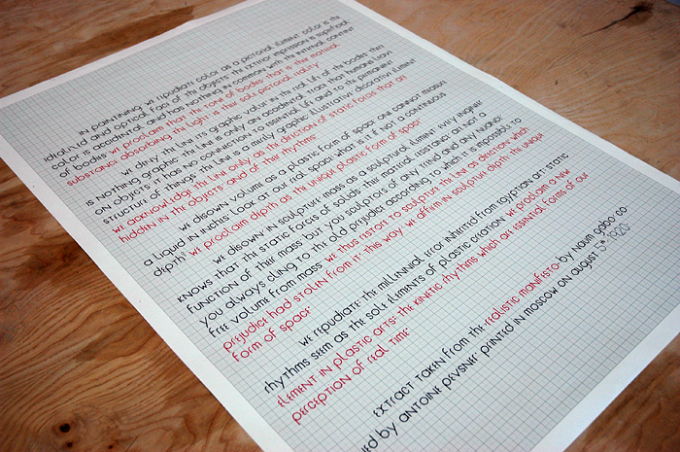 in painting we repudiate color as a pictorial element color is the
idealized and optical face of the objects the exterior impression is superficial
color is accidental and has nothing in common with the internal content
of bodies we proclaim that the tone of bodies that is the material
substance absorbing the light is their sole pictorial reality
we deny the line its graphic value in the real life of the bodies there
is nothing graphic the line is only an accidental trace that humans leave
on objects it has no connection to essential life and to the permanent
structure of things the line is a merely graphic illustrative decorative element
we acknowledge the line only as the direction of static forces that are
hidden in the objects and of their rhythms
we disown volume as a plastic form of space one cannot measure
a liquid in inches look at our real space what is it if not a continuous
depth we proclaim depth as the unique plastic form of space
we disown in sculpture mass as a sculptural element every engineer
knows that the static force of solids their material resistance are not a
function of their mass but you sculptors of any trend and any nuance
you always cling to the old prejudice according to which it is impossible to
free volume from mass we thus restore to sculpture the line as direction which
prejudice had stolen from it this way we affirm in sculpture depth the unique
form of space
we repudiate the millennial error inherited from egyptian art static
rhythms seem as the sole elements of plastic creation we proclaim a new
element in plastic arts the kinetic rhythms which are essential forms of our
perception of real time
extract taken from the realistic manifesto by naum gabo co-
ned by antoine pevsner printed in moscow on august 5th 1920